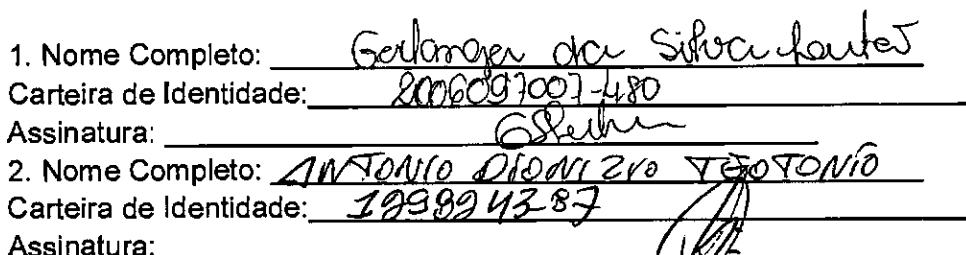 1. Nome Completo: da Silva
Carteira de Identidade: 2006097007-480
Assinatura:
2. Nome Completo: ANTONIO DIONIZIO TEOTONIO
Carteira de Identidade: 19989243-87
Assinatura: